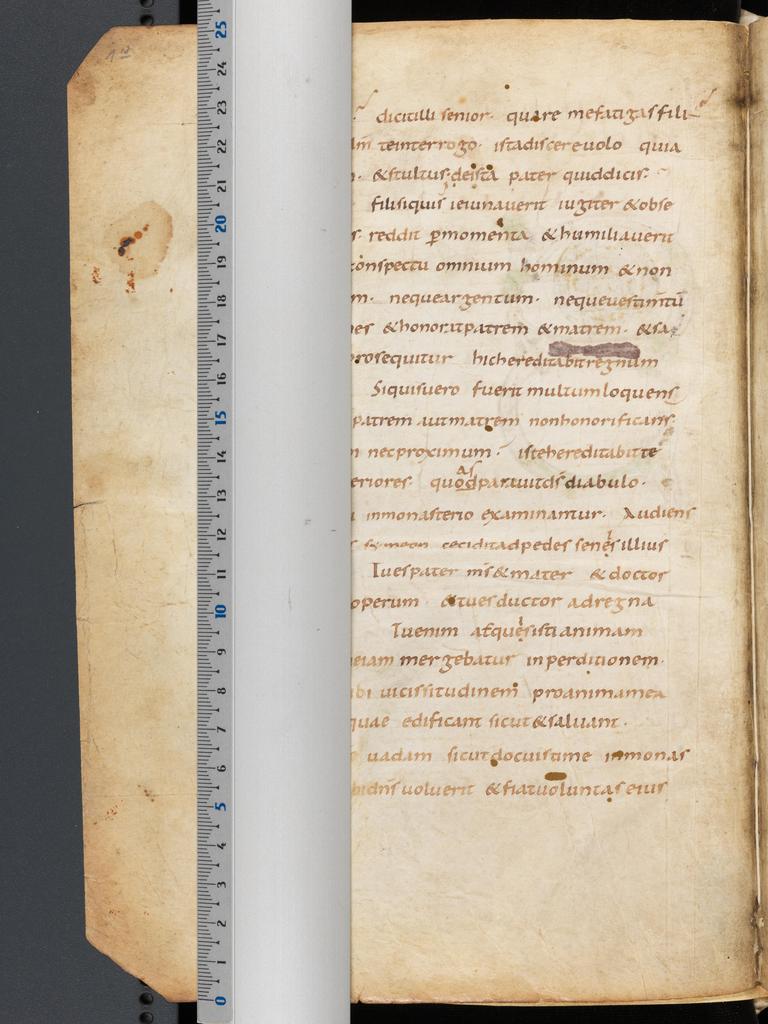 dicit illi senior. quare me fatigas fili
teinterrogo. ista discere uolo quia
& stultus. de ista pater quid dicis.
fili siquis ieiunauerit iugiter & obse
reddit p momenta & humiliauerit
conspectu omnium hominum & non
neque argentum. neque uestimtū
& honorat patrem & matrem. & sa
prosequitur hic hereditabit regnum
Siquis uero fuerit multum loquens
patrem aut matrem non honorificans.
nec proximum. iste hereditabit te
eriores. quod parauit ds diabulo.
in monasterio examinantur. Audiens
symeon cecidit ad pedes senes illius
Tu es pater ms & mater & doctor
operum. & tu es ductor ad regna
Tu enim adquesisti animam
etiam mergebatur in perditionem.
ibi uicissitudinem pro anima mea
quae edificant sicut & saluant.
uadam sicut docuisti me in monas
dns uoluerit & fiat uoluntas eius